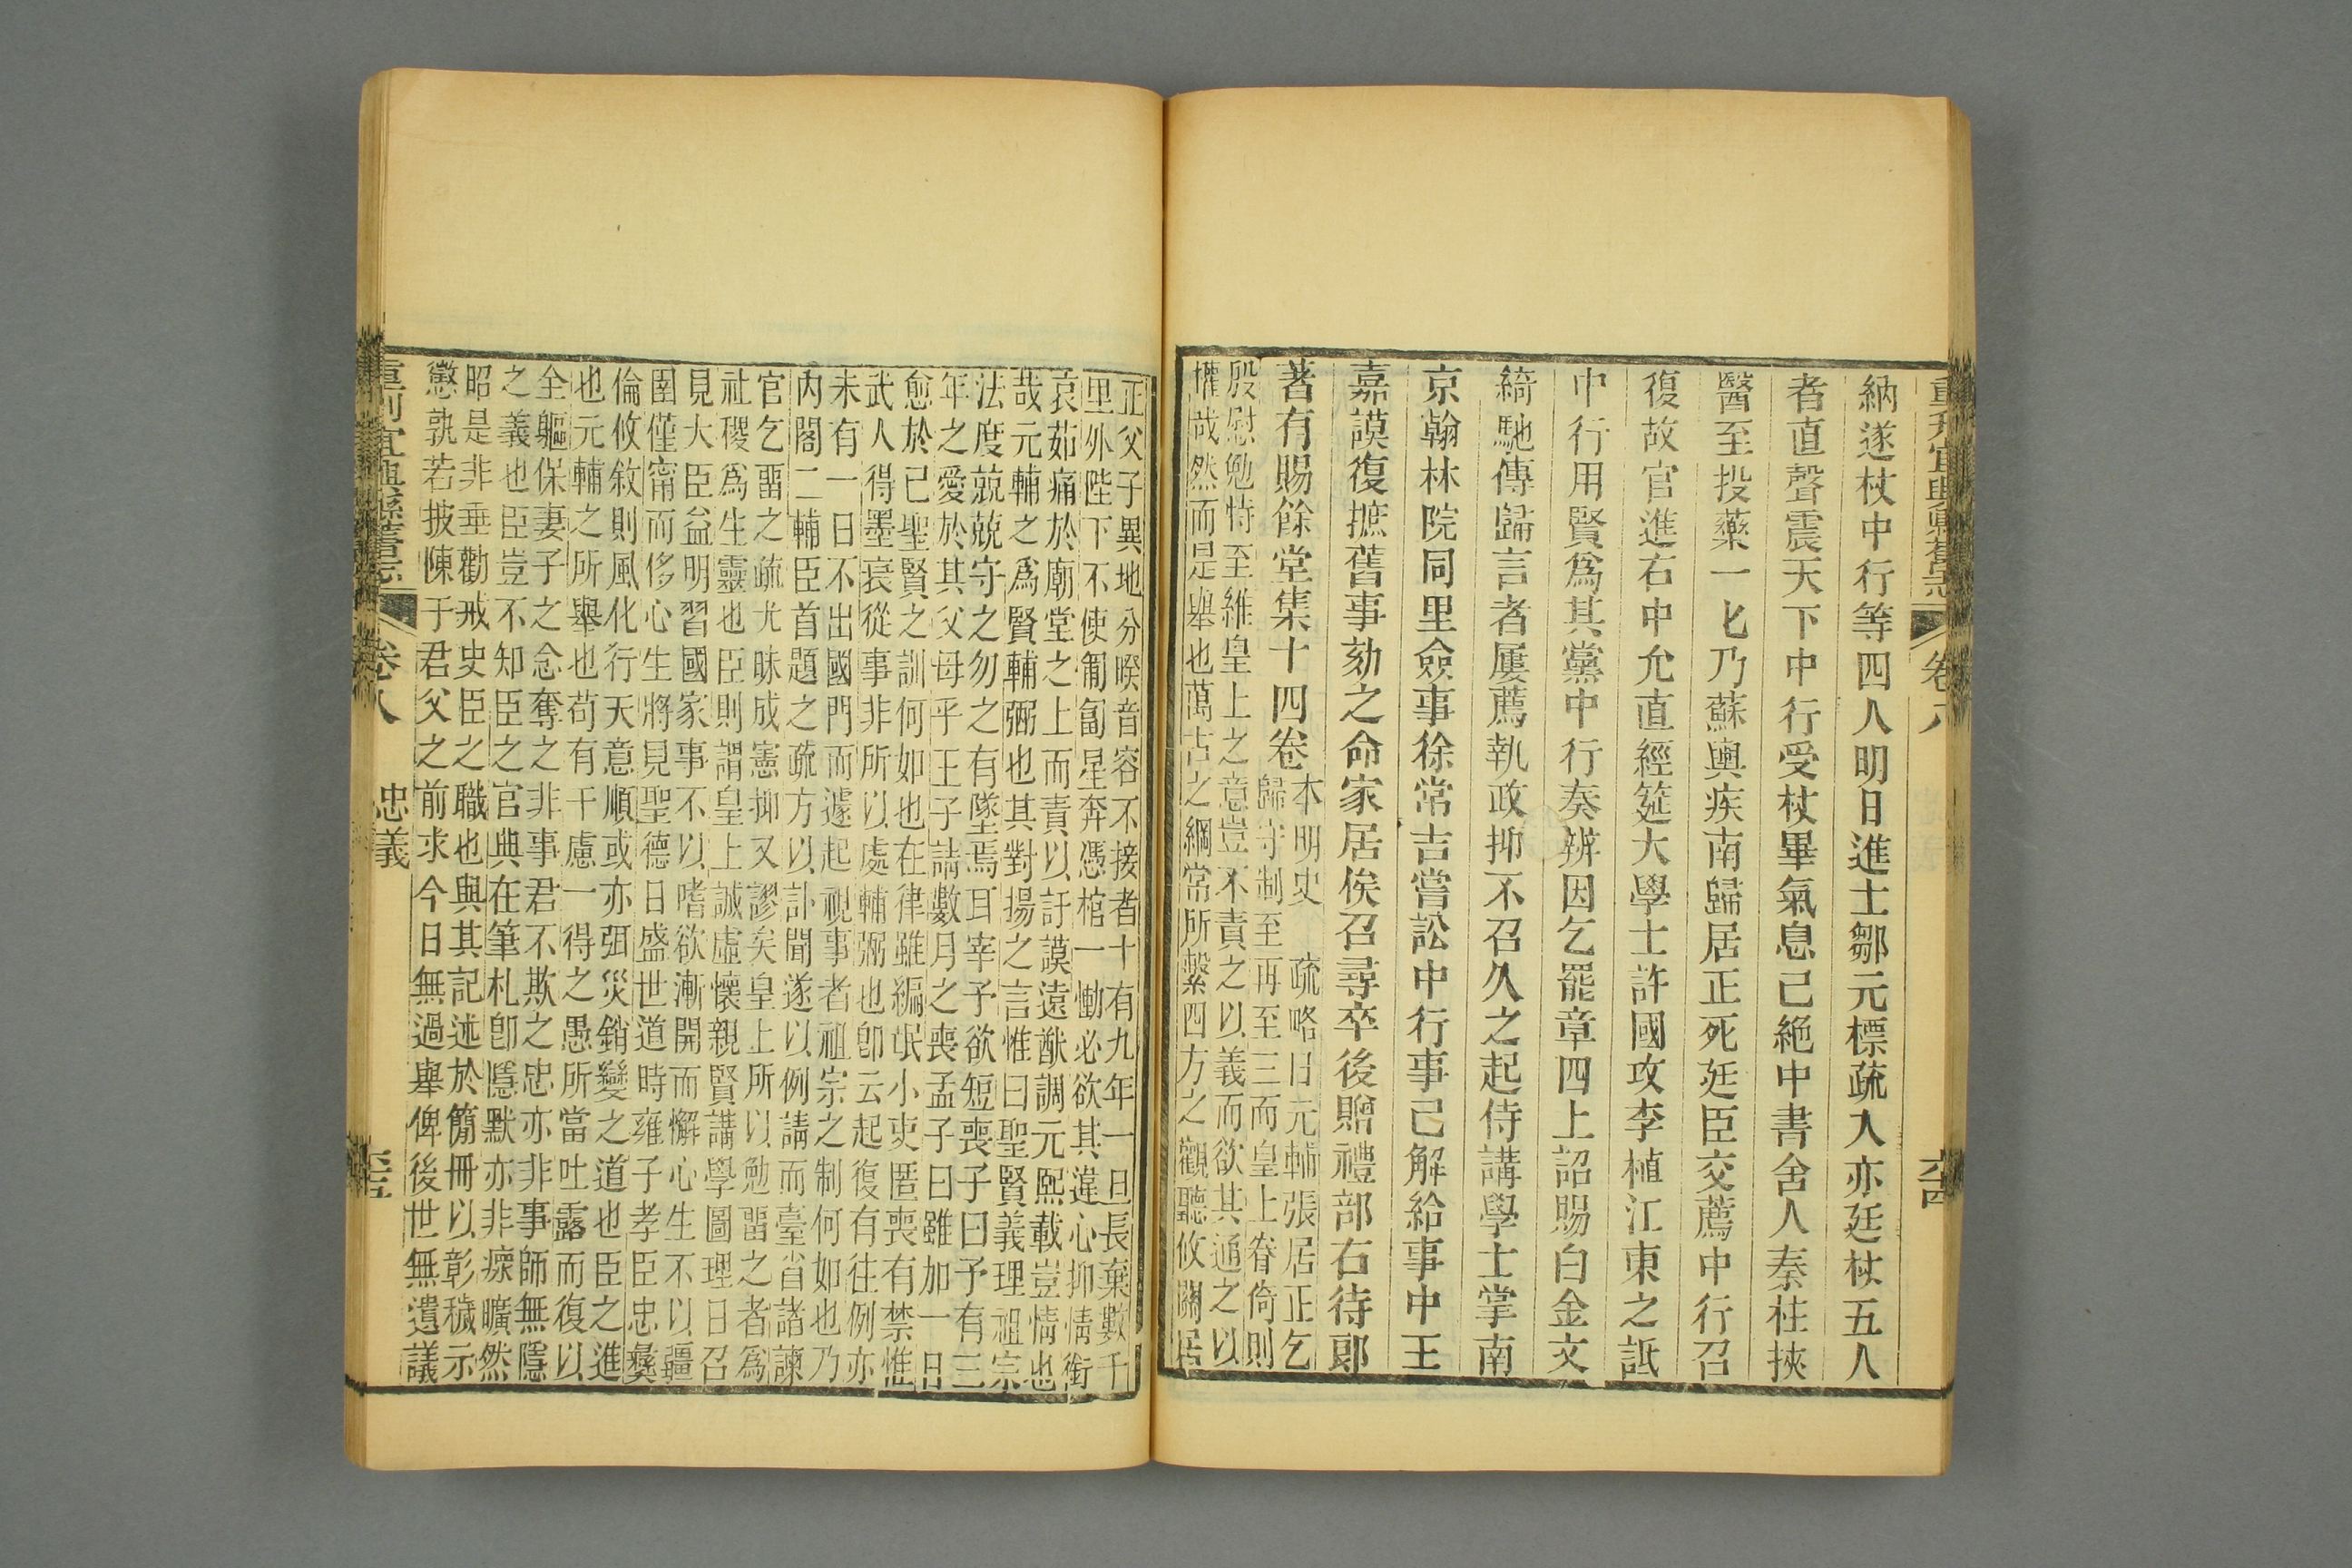 重刊宜興縣舊志 卷八
納遂杖中行等四人明日進士鄒元標疏入亦廷杖五人
者直聲震天下中行受杖畢氣息已絶中書舍人秦柱挾
醫至投藥一匕乃蘇輿疾南歸居正死廷臣交薦中行召
復故官進右中允直經筵大學士許國攻李植江東之詆
中行用賢爲其黨中行奏辨因乞罷章四上詔賜白金文
綺馳傳歸言者屢薦執政抑不召久之起侍講學士掌南
京翰林院同里僉事徐常吉嘗訟中行事已解給事中王
嘉謨復摭舊事劾之命家居俟召尋卒後贈禮部右待郎
著有賜餘堂集十四卷
本明史 疏略曰元輔張居正乞
歸守制至再至三而皇上眷倚則
殷慰勉恃至維皇上之意豈不責之以義而欲其通之以
權哉然而是舉也萬古之綱常所繫四方之觀聽攸關居
正父子異地分暌音容不接者十有九年一旦長棄數千
里外陛下不使匍匐星奔憑棺一慟必欲其違心抑情銜
哀茹痛於廟堂之上而責以訏謨遠猷調元熙載豈情也
哉元輔之爲賢輔弼也其對揚之言惟曰聖賢義理祖宗
法度兢兢守之勿之有墜焉耳宰予欲短喪子曰予有三
年之愛於其父母乎王子請數月之喪孟子曰雖加一日
愈於已聖賢之訓何如也在律雖編氓小吏匿喪有禁惟
武人得墨衰從事非所以處輔弼也卽云起復有往例亦
未有一日不出國門而遽起視事者祖宗之制何如也乃
內閣二輔臣首題之疏方以訃聞遂以例請而臺省諸諫
官乞畱之疏尤昧成憲抑又謬矣皇上所以勉畱之者爲
社稷爲生靈也臣則謂皇上誠虛懷親賢講學圖理日召
見大臣益明習國家事不以嗜欲漸開而懈心生不以疆
圉僅甯而侈心生將見聖德日盛世道時雍子孝臣忠彝
倫攸敘則風化行天意順或亦弭災銷變之道也臣之進
也元輔之所舉也苟有千慮一得之愚所當吐露而復以
全軀保妻子之念奪之非事君不欺之忠亦非事師無隱
之義也臣豈不知臣之官與在筆札卽隱默亦非瘝曠然
昭是非垂勸戒史臣之職也與其記述於簡冊以彰穢示
懲孰若披陳于君父之前求今日無過舉俾後世無遺議
重刊宜興縣舊志 卷八 忠義